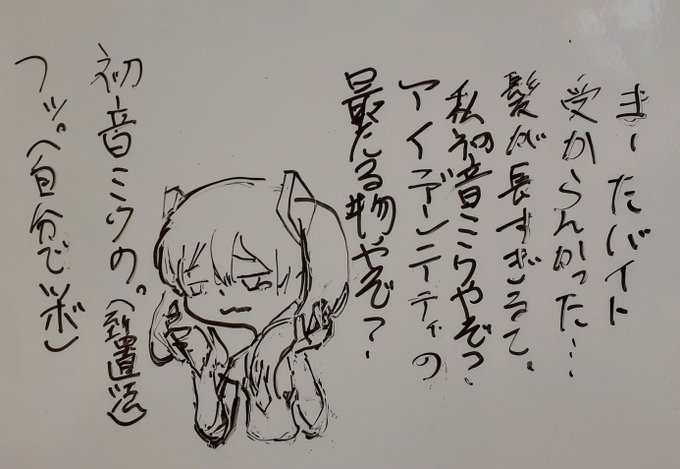 まーたバイト
受からんかった…
髪が長すぎるて。
私初音ミクやぞ?
アイデンティティの
最たる物やぞ?
初音ミクの。(倒置法)
フッ。(自分でツボ)